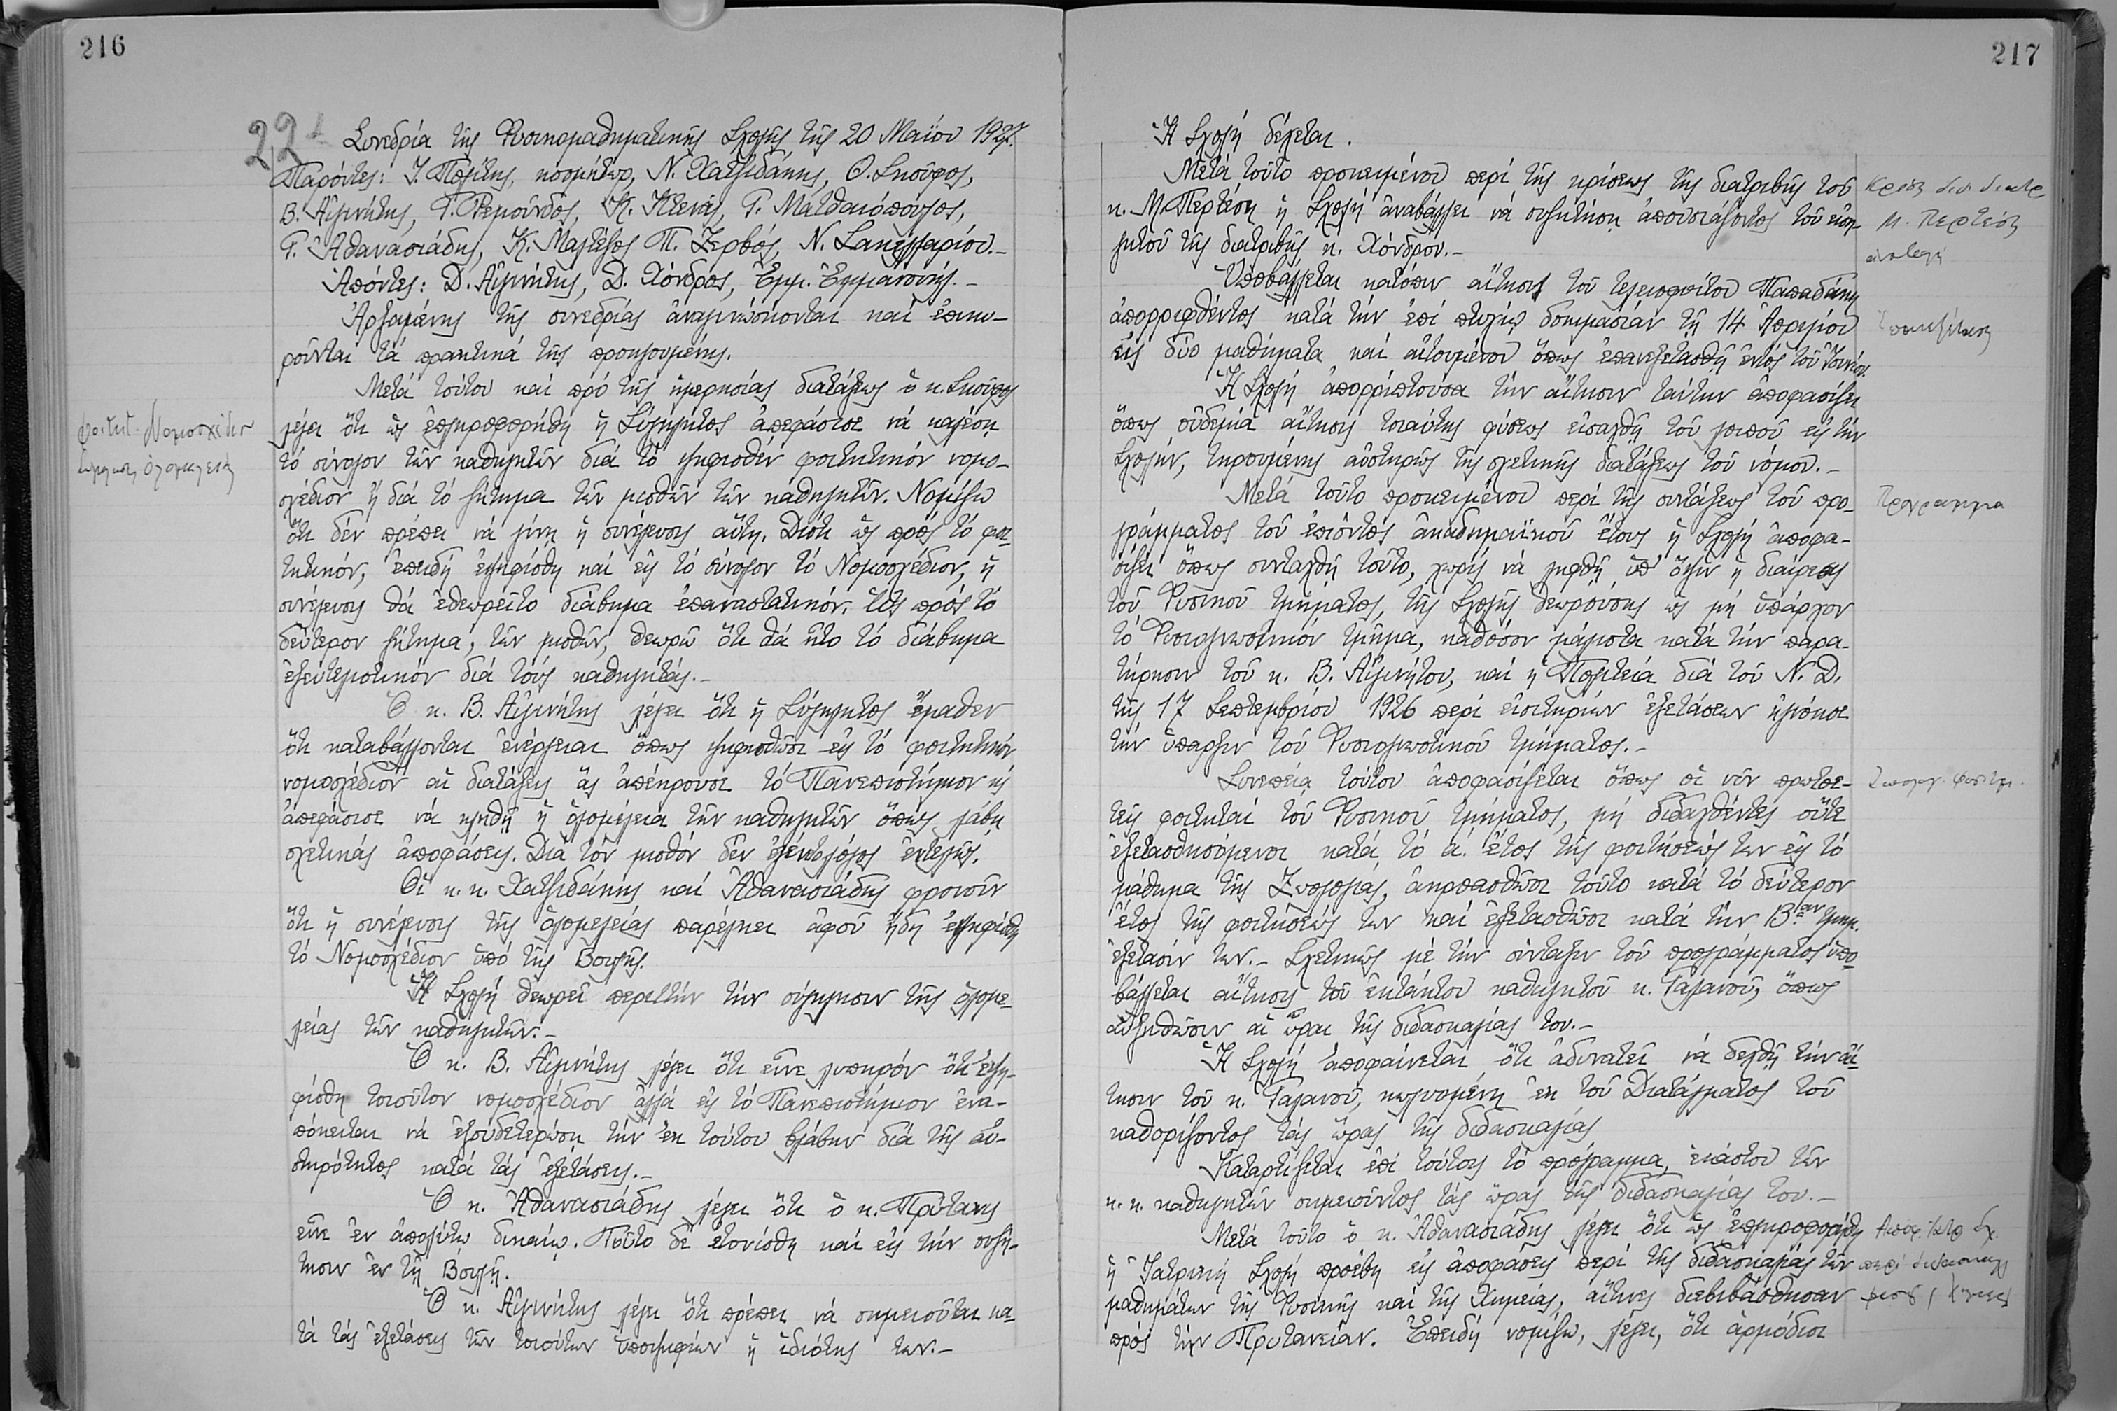 216
22α
Συνεδρία τῆς Φυσικομαθηματικῆς Σχολῆς τῆς 20 Μαΐου 1927.
Παρόντες: Ι. Πολίτης, κοσμήτωρ, Ν. Χατζιδάκης, Θ. Σκοῦφος,
Β. Αἰγινήτης, Γ. Ρεμοῦνδος, Κ. Κτενᾶς, Γ. Ματθαιόπουλος,
Γ. Ἀθανασιάδης, Κ. Μαλτέζος Π. Ζερβός, Ν. Σακελλαρίου.—
Ἀπόντες: Δ. Αἰγινήτης, Δ. Χόνδρος, Ἐμμ. Ἐμμανουήλ.—
Ἀρξαμένης τῆς συνεδρίας ἀναγινώσκονται καὶ ἐπικυ-
ροῦνται τὰ πρακτικὰ τῆς προηγουμένης.
Μετὰ τοῦτον καὶ πρὸ τῆς ἡμερησίας διατάξεως ὁ κ. Σκοῦφος
λέγει ὅτι ὡς ἐπληροφορήθη ἡ Σύγκλητος ἀπεφάσισε νὰ καλέσῃ
τὸ σύνολον τῶν καθηγητῶν διὰ τὸ ψηφισθὲν φοιτητικὸν νομο-
σχέδιον ἢ διὰ τὸ ζήτημα τῶν μισθῶν τῶν καθηγητῶν. Νομίζω
ὅτι δὲν πρέπει νὰ γίνῃ ἡ συνέλευσις αὕτη. Διότι ὡς πρὸς τὸ φοι-
τητικόν, ἐπειδὴ ἐψηφίσθη καὶ εἰς τὸ σύνολον τὸ Νομοσχέδιον, ἡ
συνέλευσις θὰ ἐθεωρεῖτο διάβημα ἐπαναστατικόν. Ὡς πρὸς τὸ
δεύτερον ζήτημα, τῶν μισθῶν, θεωρῶ ὅτι θὰ ἦτο τὸ διάβημα
ἐξευτελιστικὸν διὰ τοὺς καθηγητάς.—
Ὁ κ. Β. Αἰγινήτης λέγει ὅτι ἡ Σύγκλητος ἔμαθεν
ὅτι καταβάλλονται ἐνέργειαι ὅπως ψηφισθῶσι εἰς τὸ φοιτητικὸν
νομοσχέδιον αἱ διατάξεις ἃς ἀπέκρουσε τὸ Πανεπιστήμιον κι
ἀπεφάσισε νὰ κληθῇ ἡ ὁλομέλεια τῶν καθηγητῶν ὅπως λάβῃ
σχετικὰς ἀποφάσεις. Διὰ τὸν μισθὸν δὲν ἐγένετο λόγος ἐντελῶς.
Οἱ κ. κ. Χατζιδάκης καὶ Ἀθανασιάδης φρονοῦν
ὅτι ἡ συνέλευσις τῆς ὁλομελείας παρέλκει ἀφοῦ ἤδη ἐψηφίσθη
τὸ Νομοσχέδιον ὑπὸ τῆς Βουλῆς.
Ἡ Σχολὴ θεωρεῖ περιττὴν τὴν σύγκλησιν τῆς ὁλομε-
λείας τῶν καθηγητῶν.—
Ὁ κ. Β. Αἰγινήτης λέγει ὅτι εἶνε λυπηρὸν ὅτι ἐψη-
φίσθη τοιοῦτον νομοσχέδιον ἀλλὰ εἰς τὸ Πανεπιστήμιον ἐνα-
πόκειται νὰ ἐξουδετερώσῃ τὴν ἐκ τούτου βλάβην διὰ τῆς αὐ-
στηρότητος κατὰ τὰς ἐξετάσεις.—
Ὁ κ. Ἀθανασιάδης λέγει ὅτι ὁ κ. Πρύτανις
εἶνε ἐν ἀπολύτῳ δικαίῳ. Τοῦτο δὲ ἐτονίσθη καὶ εἰς τὴν συζή-
τησιν ἐν τῇ Βουλῇ.
Ὁ κ. Αἰγινήτης λέγει ὅτι πρέπει νὰ σημειοῦται κα-
τὰ τὰς ἐξετάσεις τῶν τοιούτων ὑποψηφίων ἡ ἰδιότης των.—
φοιτητ. Νομοσχέδιον
217
Ἡ Σχολὴ δέχεται.
Μετὰ τοῦτο προκειμένου περὶ τῆς κρίσεως τῆς διατριβῆς τοῦ
κ. Μ. Περτέση ἡ Σχολὴ ἀναβάλλει νὰ συζητήσῃ ἀπουσιάζοντος τοῦ εἰση-
γητοῦ τῆς διατριβῆς κ. Χόνδρου.—
Ὑποβάλλεται κατόπιν αἴτησις τοῦ τελειοφοίτου Παπαδάκη
ἀπορριφθέντος κατὰ τὴν ἐπὶ πτυχίῳ δοκιμασίαν τῇ 14 Ἀπριλίου
εἰς δύο μαθήματα καὶ αἰτουμένου ὅπως ἐπανεξετασθῇ ἐντὸς τοῦ Ἰουνίου.
Ἡ Σχολὴ ἀπορρίπτουσα τὴν αἴτησιν ταύτην ἀποφασίζει
ὅπως οὐδεμία αἴτησις τοιαύτης φύσεως εἰσαχθῇ τοῦ λοιποῦ εἰς τὴν
Σχολήν, τηρουμένης αὐστηρῶς τῆς σχετικῆς διατάξεως τοῦ νόμου.—
Μετὰ τοῦτο προκειμένου περὶ τῆς συντάξεως τοῦ προ-
γράμματος τοῦ ἐπιόντος ἀκαδημαϊκοῦ ἔτους ἡ Σχολὴ ἀποφα-
σίζει ὅπως συνταχθῇ τοῦτο, χωρὶς νὰ ληφθῇ ὑπ' ὄψιν ἡ διαίρεσις
τοῦ Φυσικοῦ τμήματος, τῆς Σχολῆς θεωρούσης ὡς μὴ ὑπάρχον
τὸ Φυσιογνωστικὸν τμῆμα, καθόσον μάλιστα κατὰ τὴν παρα-
τήρησιν τοῦ κ. Β. Αἰγινήτου, καὶ ἡ Πολιτεία διὰ τοῦ Ν. Δ.
τῆς 17 Σεπτεμβρίου 1926 περὶ εἰσιτηρίων ἐξετάσεων ἠγνόησε
τὴν ὕπαρξιν τοῦ Φυσιογνωστικοῦ τμήματος.—
Συνεπείᾳ τούτου ἀποφασίζεται ὅπως οἱ νῦν πρωτοε-
τεῖς φοιτηταὶ τοῦ Φυσικοῦ τμήματος, μὴ διδαχθέντες οὔτε
ἐξετασθησόμενοι κατὰ τὸ α. ἔτος τῆς φοιτήσεώς των εἰς τὸ
μάθημα τῆς Ζωολογίας, ἀκροασθῶσι τοῦτο κατὰ τὸ δεύτερον
ἔτος τῆς φοιτήσεώς των καὶ ἐξετασθῶσι κατὰ τὴν Βαν τμημ.
ἐξέτασίν των.— Σχετικῶς μὲ τὴν σύνταξιν τοῦ προγράμματος ὑπο-
βάλλεται αἴτησις τοῦ ἐκτάκτου καθηγητοῦ κ. Γαλανοῦ, ὅπως
αὐξηθῶσιν αἱ ὧραι τῆς διδασκαλίας του.—
Ἡ Σχολὴ ἀποφαίνεται ὅτι ἀδυνατεῖ νὰ δεχθῇ τὴν αἴ-
τησιν τοῦ κ. Γαλανοῦ, κωλυομένη ἐκ τοῦ Διατάγματος τοῦ
καθορίζοντος τὰς ὥρας τῆς διδασκαλίας
Καταρτίζεται ἐπὶ τούτοις τὸ πρόγραμμα, ἑκάστου τῶν
κ. κ. καθηγητῶν σημειοῦντος τὰς ὥρας τῆς διδασκαλίας του.—
Μετὰ τοῦτο ὁ κ. Ἀθανασιάδης λέγει ὅτι ὡς ἐπληροφορήθη
ἡ Ἰατρικὴ Σχολὴ προέβη εἰς ἀποφάσεις περὶ τῆς διδασκαλίας τῶν
μαθημάτων τῆς Φυσικῆς καὶ τῆς Χημείας, αἵτινες διεβιβάσθησαν
πρὸς τὴν Πρυτανείαν. Ἐπειδὴ νομίζω, λέγει, ὅτι ἁρμόδιοι
Κρίσις διδ. διατρ.
Μ. Περτέση
ἀναβολή
ἐπανεξέτασις
Πρόγραμμα
Ζωολογ. φοιτ.
Ἀποφ. Ἰατρ. Σχ.
περὶ διδασκαλ.
φυσ. / Χημεί